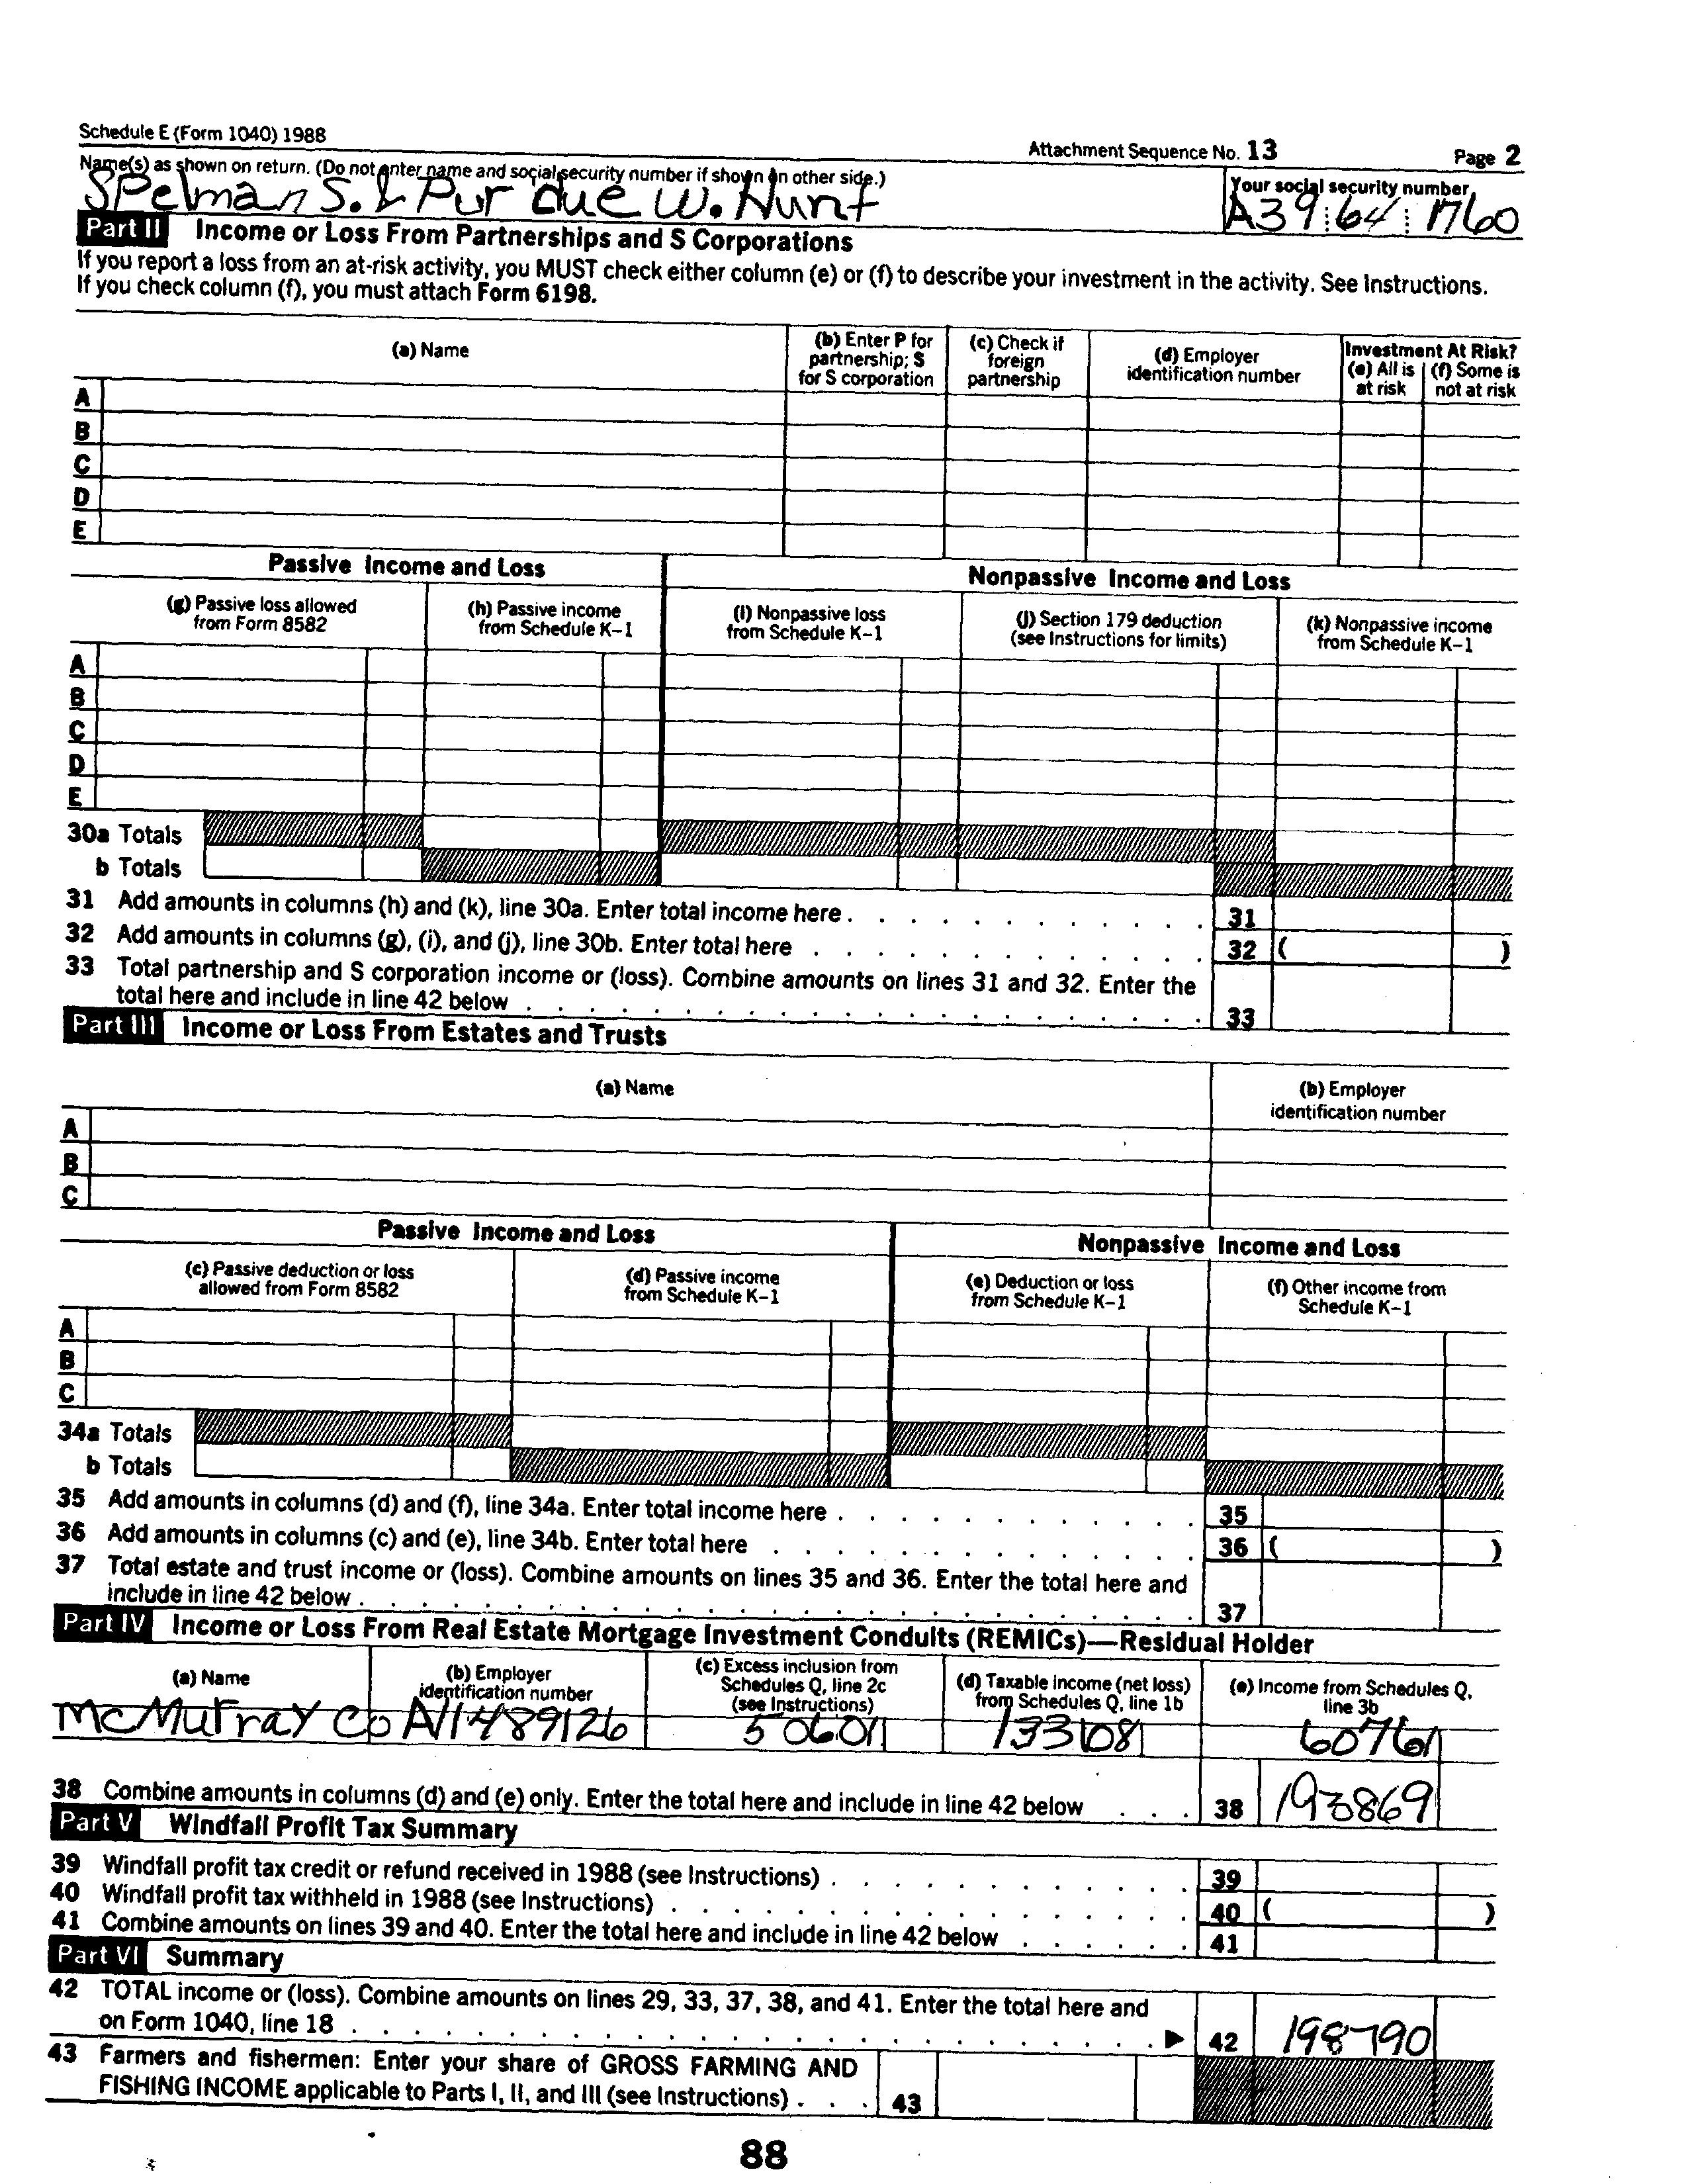 Schedule E (Form 1040) 1988
Attachment Sequence No. 13
Page 2
Name(s) as shown on return. (Do not enter name and social security number if shown on other side.)
Your social security number
Spelman S. & Purdue W. Hunt
A39 64 1760
Part II Income or Loss From Partnerships and S Corporations
If you report a loss from an at-risk activity, you MUST check either column (e) or (f) to describe your investment in the activity. See Instructions.
If you check column (f), you must attach Form 6198.
(a) Name
(b) Enter P for partnership; S for S corporation
(c) Check if foreign partnership
(d) Employer identification number
Investment At Risk?
(e) All is at risk
(f) Some is not at risk
A
B
C
D
E
Passive Income and Loss
Nonpassive Income and Loss
(g) Passive loss allowed from Form 8582
(h) Passive income from Schedule K–1
(i) Nonpassive loss from Schedule K–1
(j) Section 179 deduction (see Instructions for limits)
(k) Nonpassive income from Schedule K–1
A
B
C
D
E
30a Totals
b Totals
31 Add amounts in columns (h) and (k), line 30a. Enter total income here . . . 31
32 Add amounts in columns (g), (i), and (j), line 30b. Enter total here . . . 32 ( )
33 Total partnership and S corporation income or (loss). Combine amounts on lines 31 and 32. Enter the
total here and include in line 42 below . . . 33
Part III Income or Loss From Estates and Trusts
(a) Name
(b) Employer identification number
A
B
C
Passive Income and Loss
Nonpassive Income and Loss
(c) Passive deduction or loss allowed from Form 8582
(d) Passive income from Schedule K–1
(e) Deduction or loss from Schedule K–1
(f) Other income from Schedule K–1
A
B
C
34a Totals
b Totals
35 Add amounts in columns (d) and (f), line 34a. Enter total income here . . . 35
36 Add amounts in columns (c) and (e), line 34b. Enter total here . . . 36 ( )
37 Total estate and trust income or (loss). Combine amounts on lines 35 and 36. Enter the total here and
include in line 42 below . . . 37
Part IV Income or Loss From Real Estate Mortgage Investment Conduits (REMICs)—Residual Holder
(a) Name
(b) Employer identification number
(c) Excess inclusion from Schedules Q, line 2c (see Instructions)
(d) Taxable income (net loss) from Schedules Q, line 1b
(e) Income from Schedules Q, line 3b
McMurray Co
A11489126
50601
133108
60761
38 Combine amounts in columns (d) and (e) only. Enter the total here and include in line 42 below . . . 38 193869
Part V Windfall Profit Tax Summary
39 Windfall profit tax credit or refund received in 1988 (see Instructions) . . . 39
40 Windfall profit tax withheld in 1988 (see Instructions) . . . 40 ( )
41 Combine amounts on lines 39 and 40. Enter the total here and include in line 42 below . . . 41
Part VI Summary
42 TOTAL income or (loss). Combine amounts on lines 29, 33, 37, 38, and 41. Enter the total here and
on Form 1040, line 18 . . . ▶ 42 198790
43 Farmers and fishermen: Enter your share of GROSS FARMING AND
FISHING INCOME applicable to Parts I, II, and III (see Instructions) . . . 43
88